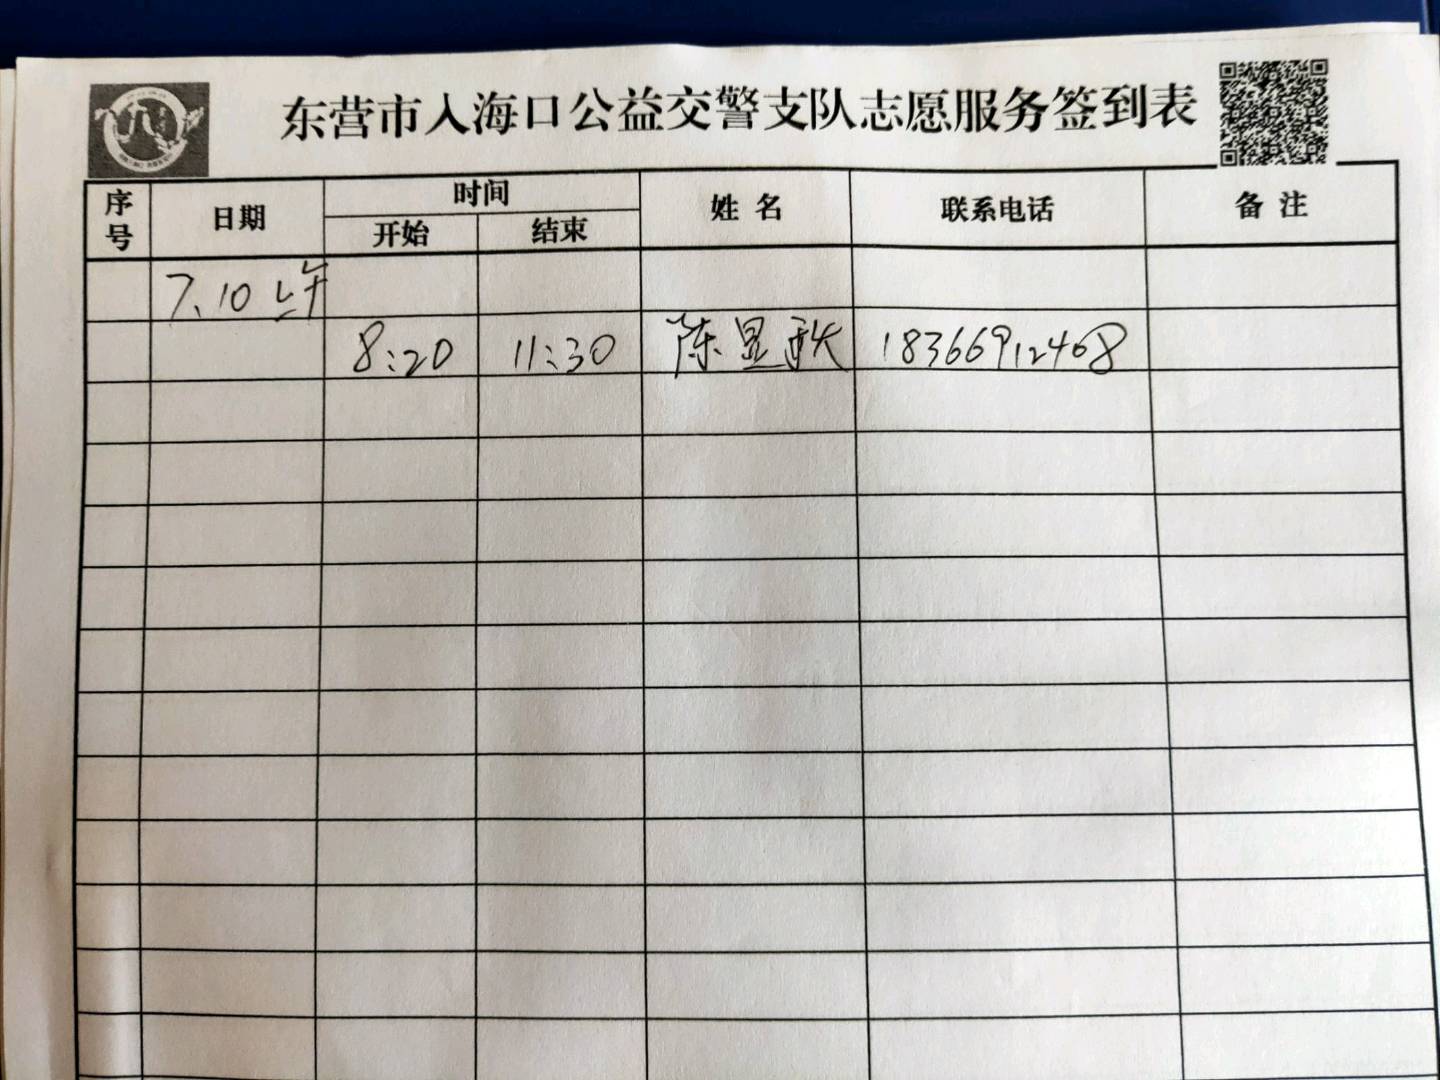 东营市入海口公益交警支队志愿服务签到表
序号 日期 时间 姓名 联系电话 备注
开始 结束
7.10 上午
8:20 11:30 陈昱秋 18366912468